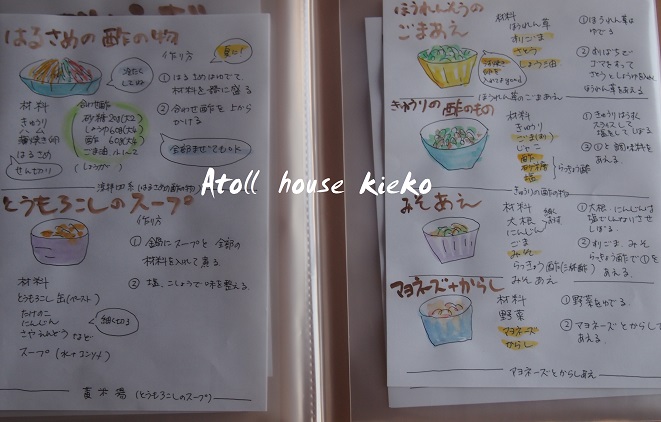 はるさめの 酢の物
夏に!
冷たく
してね
作り方
① はるさめはゆでて
材料を器に盛る
② 合わせ酢を上から
かける
全部まぜてもok
材料
きゅうり
ハム
薄焼き卵
はるさめ
せん切り
合わせ酢
砂糖
しょうゆ
酢
ごま油
(しょうが)
(はるさめの酢の物)
とうもろこしのスープ
作り方
① 鍋にスープと 全部の
材料を入れて煮る
② 塩、こしょうで味を整える。
材料
とうもろこし 缶(ペースト)
たけのこ
にんじん
さやえんどう など
細く切る
スープ (水+コンソメ)
(とうもろこしのスープ)
Atoll house kieko
ほうれんそうの
ごまあえ
材料
ほうれん草
すりごま
さとう
しょうゆ
① ほうれん草は
ゆでる
② すりばちで
ゴマをすって
さとうとしょうゆを入れ
ほうれん草をあえる
ほうれん草のごまあえ
きゅうりの酢のもの
材料
きゅうり
ごま
じゃこ
酢
砂糖
塩
らっきょう酢
① きゅうりはうすく
スライスして
塩をしてしぼる
② ①と調味料を
あえる。
きゅうりの酢の物
みそあえ
材料
大根
にんじん
ごま
みそ
らっきょう酢(三杯酢)
① 大根・にんじんは
塩でしんなりさせ
しぼる。
② すりごま、みそ
らっきょう酢で①を
あえる。
みそあえ
マヨネーズ+からし
材料
野菜
マヨネーズ
からし
① 野菜をゆでる。
② マヨネーズとからしで
あえる。
マヨネーズとからしあえ